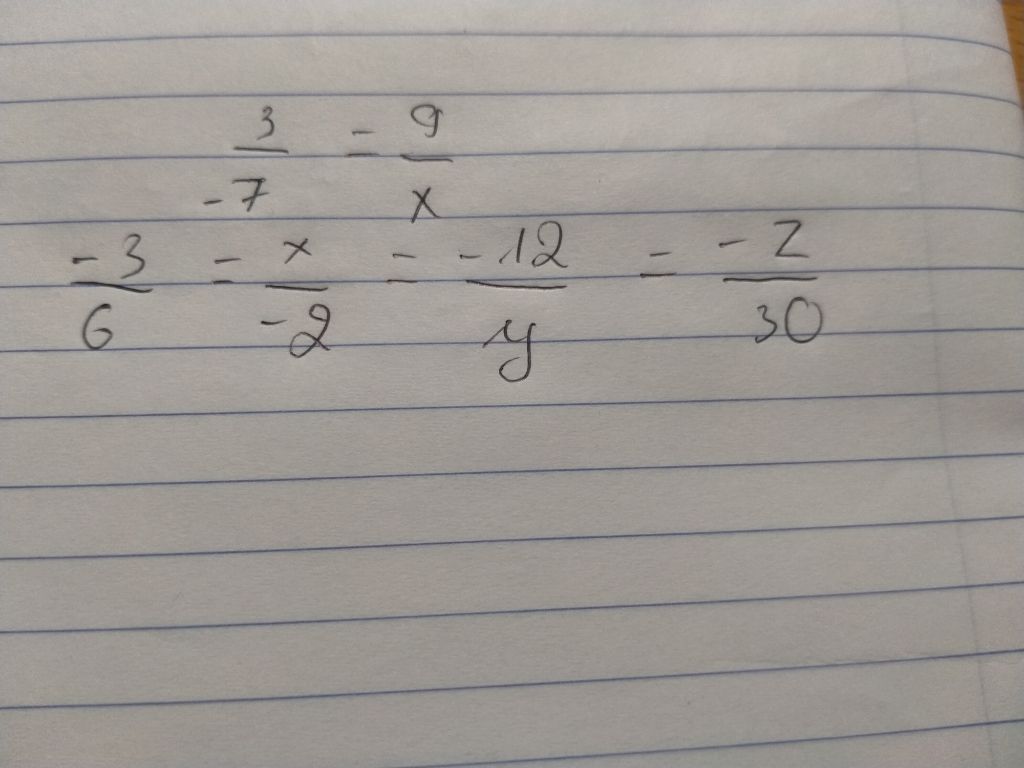 3/-7 = 9/x
-3/6 = x/-2 = -12/y = -z/30